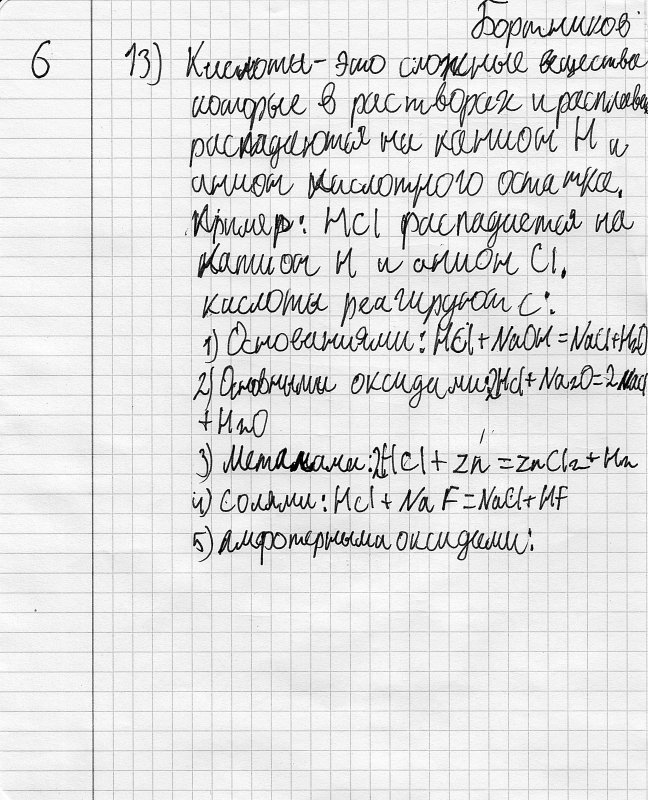 Бортников
6 13) Кислоты - это сложные вещества
которые в растворах и расплавах
распадаются на катион H и
анион кислотного остатка.
Пример: HCl распадается на
катион H и анион Cl.
кислоты реагируют с:
1) Основаниями: HCl + NaOH = NaCl + H2O
2) Основными оксидами: 2HCl + Na2O = 2NaCl
+ H2O
3) Металлами: 2HCl + Zn = ZnCl2 + H2
4) солями: HCl + NaF = NaCl + HF
5) амфотерными оксидами: